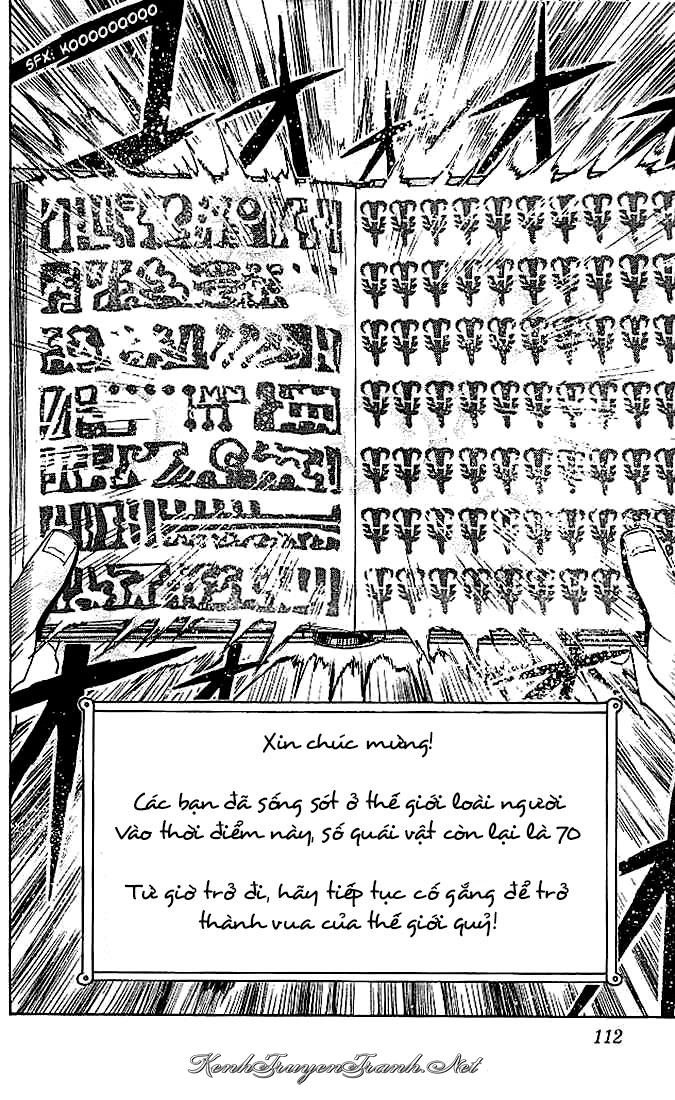 SFX: KOOOOOOOOO
Xin chúc mừng!
Các bạn đã sống sót ở thế giới loài người
Vào thời điểm này, số quái vật còn lại là 70
Từ giờ trở đi, hãy tiếp tục cố gắng để trở
thành vua của thế giới quỷ!
112
KenhTruyenTranh.Net